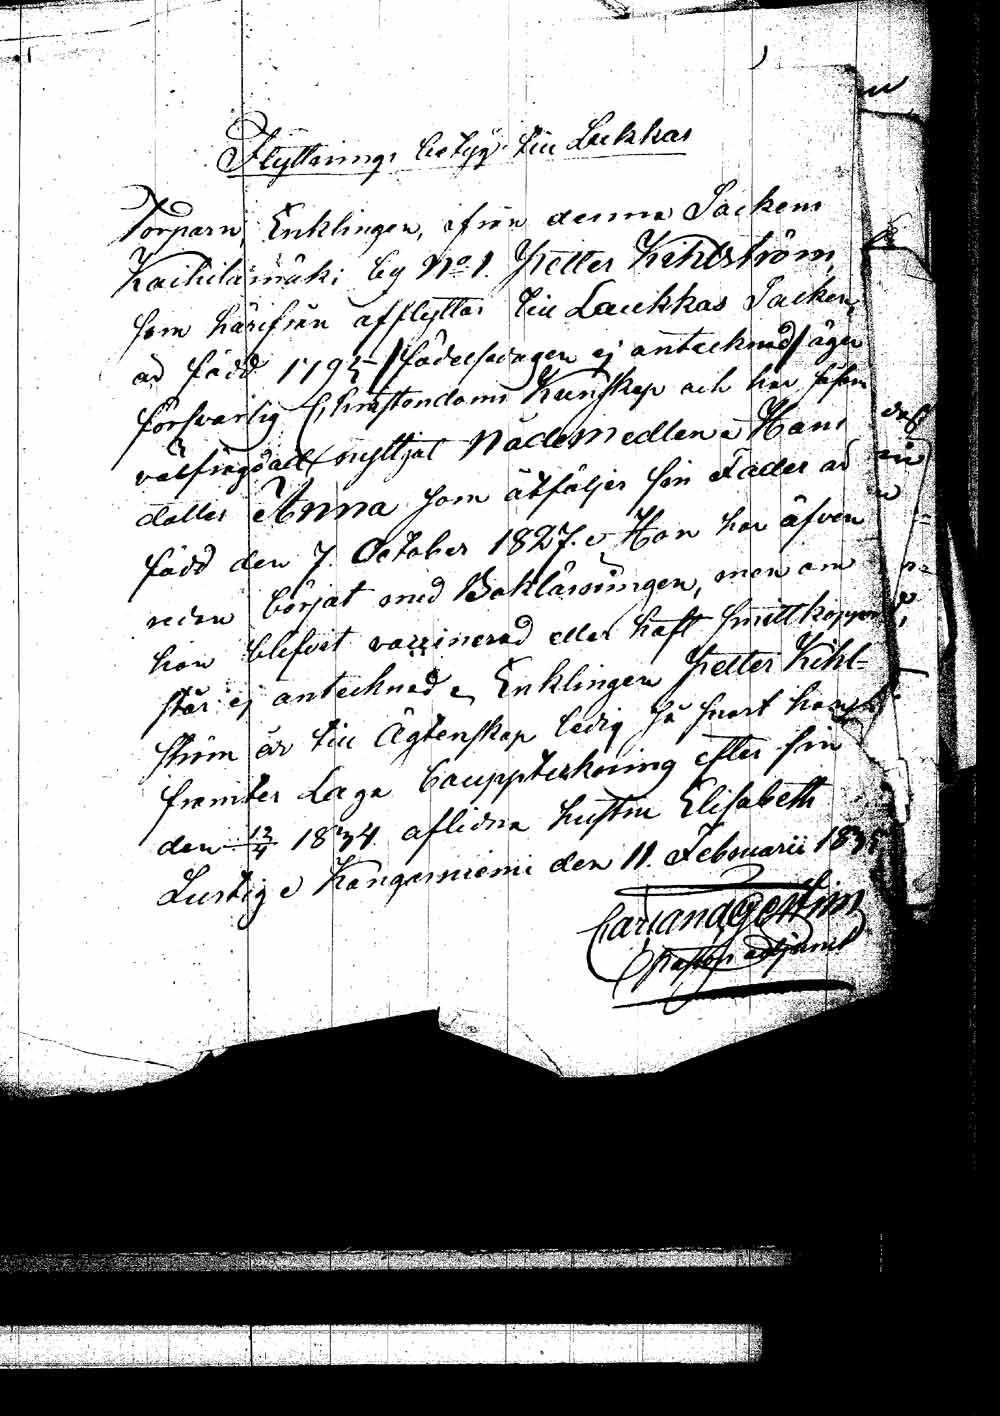 Flyttnings betyg till Laukkas
Torparn, Enklingen, ifrån denna Sockens
Kaihilamäki by No 1. Petter Kihlström,
som härifrån afflyttar till Laukkas Socken,
är född 1795 /födelsedagen ej antecknad/ äger
försvarlig Christendoms Kunskap och har såsom
välfrägdad nyttjat Nådemedlen. Hans
dotter Anna som åtföljer sin Fader är
född den 7. October 1827. Hon har äfven
redan börjat med Bokläsningen, men om
hon blifvit vaccinerad eller haft smittkoppor
står ej antecknad. Enklingen Petter Kihl=
ström är till Ägtenskap ledig så snart han
framter Laga bouppteckning efter sin
den 12/4 1834 aflidna hustru Elisabeth
Lustig. Kangasniemi den 11. Februarii 1835
Pastors adjunct